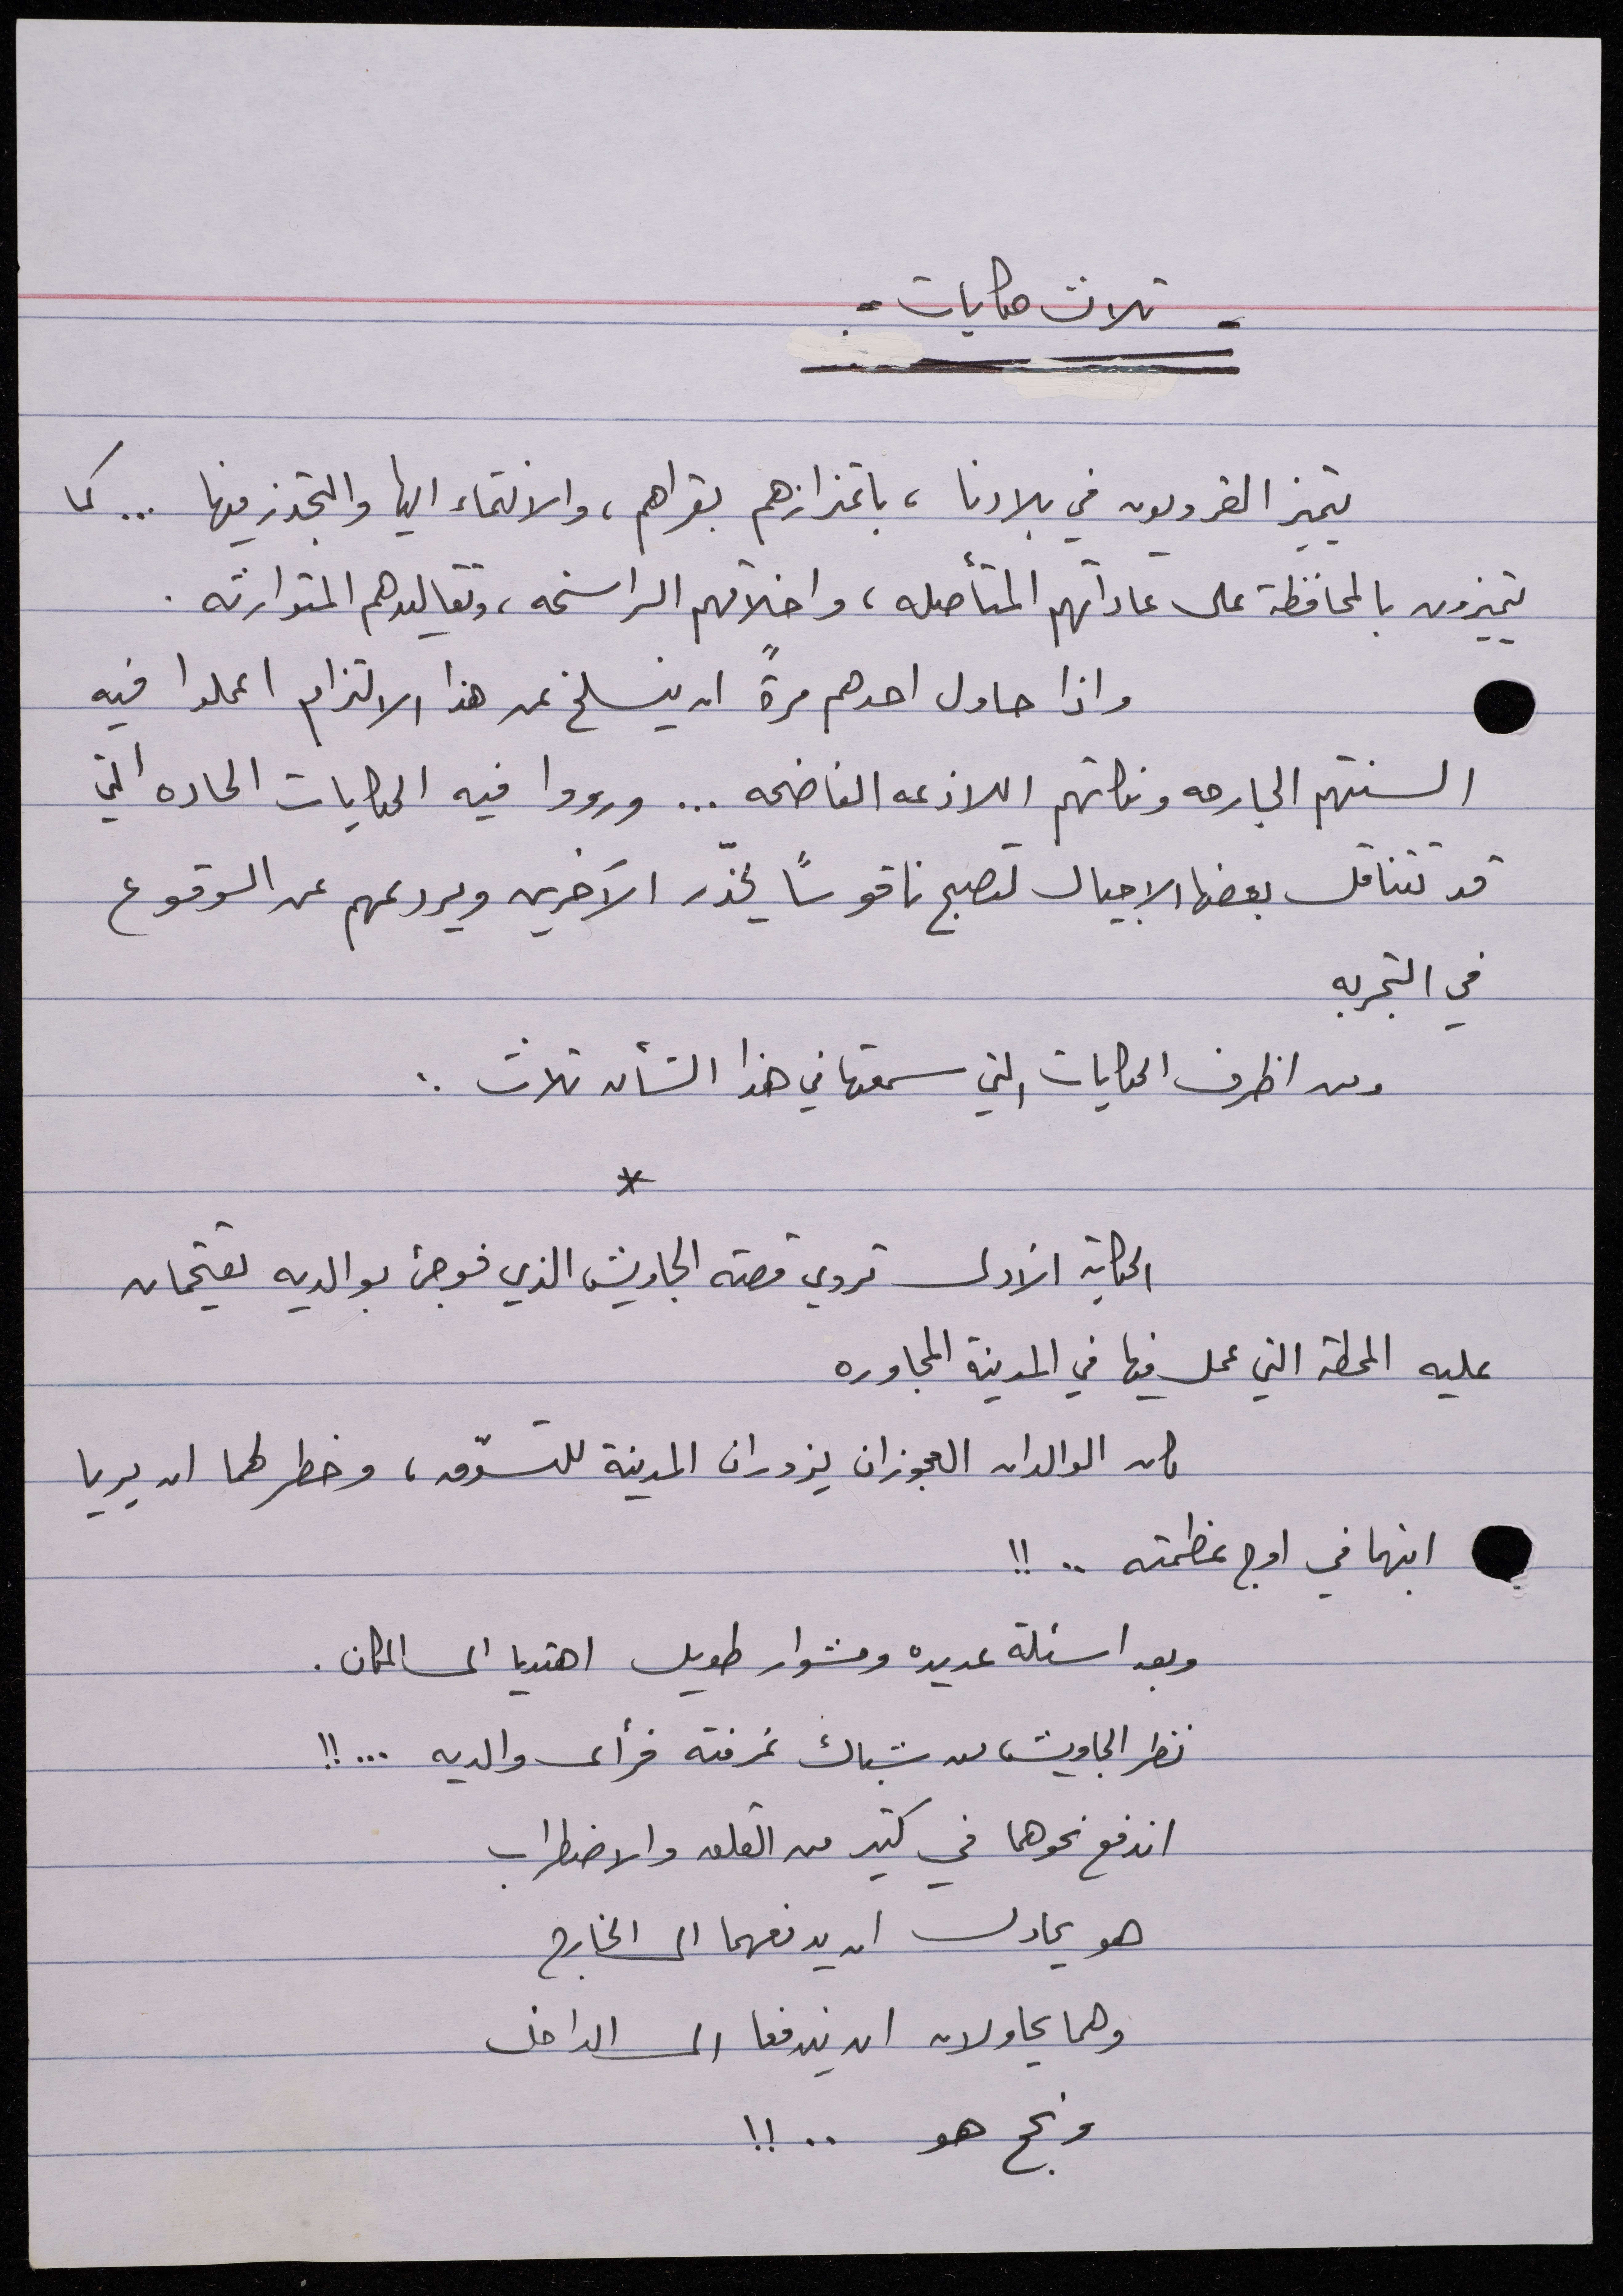 - ثلاث حكايات -:
يتميز القرويون في بلادنا ، باعتزازهم بقراهم ، والانتماء اليها والتجذر فيها ... كما
يتميزون بالمحافظة على عاداتهم المتأصله ، واخلاقهم الراسخه ، وتقاليدهم المتوارثه .
واذا حاول احدهم مرةً ان ينسلخ عن هذا الالتزام اعملوا فيه
السنتهم الجارحه ونكاتهم اللاذعه الفاضحه ... ورووا فيه الحكايات الحاده التي
قد تتناقل بعضها الاجيال لتصبح ناقوساً يحذّر الآخرين ويردعهم عن الوقوع
في التجربه
ومن اظرف الحكايات التي سمعتها في هذا الشأن ثلاث :
*
الحكاية الاولى تروي قصة الجاويش الذي فوجئ بوالديه يقتحمان
عليه المحطة التي عمل فيها في المدينة المجاوره
كان الوالدان العجوزان يزوران المدينة للتسوّق ، وخطر لهما ان يريا
ابنهما في اوج عظمته .. !!
وبعد اسئلة عديده ومشوار طويل اهتديا الى المكان .
نظر الجاويش من شباك غرفته فرأى والديه ... !!
اندفع نحوهما في كثير من القلق والاضطراب
هو يحاول ان يدفعهما الى الخارج
وهما يحاولان ان يندفعا الى الداخل
ونجح هو .. !!